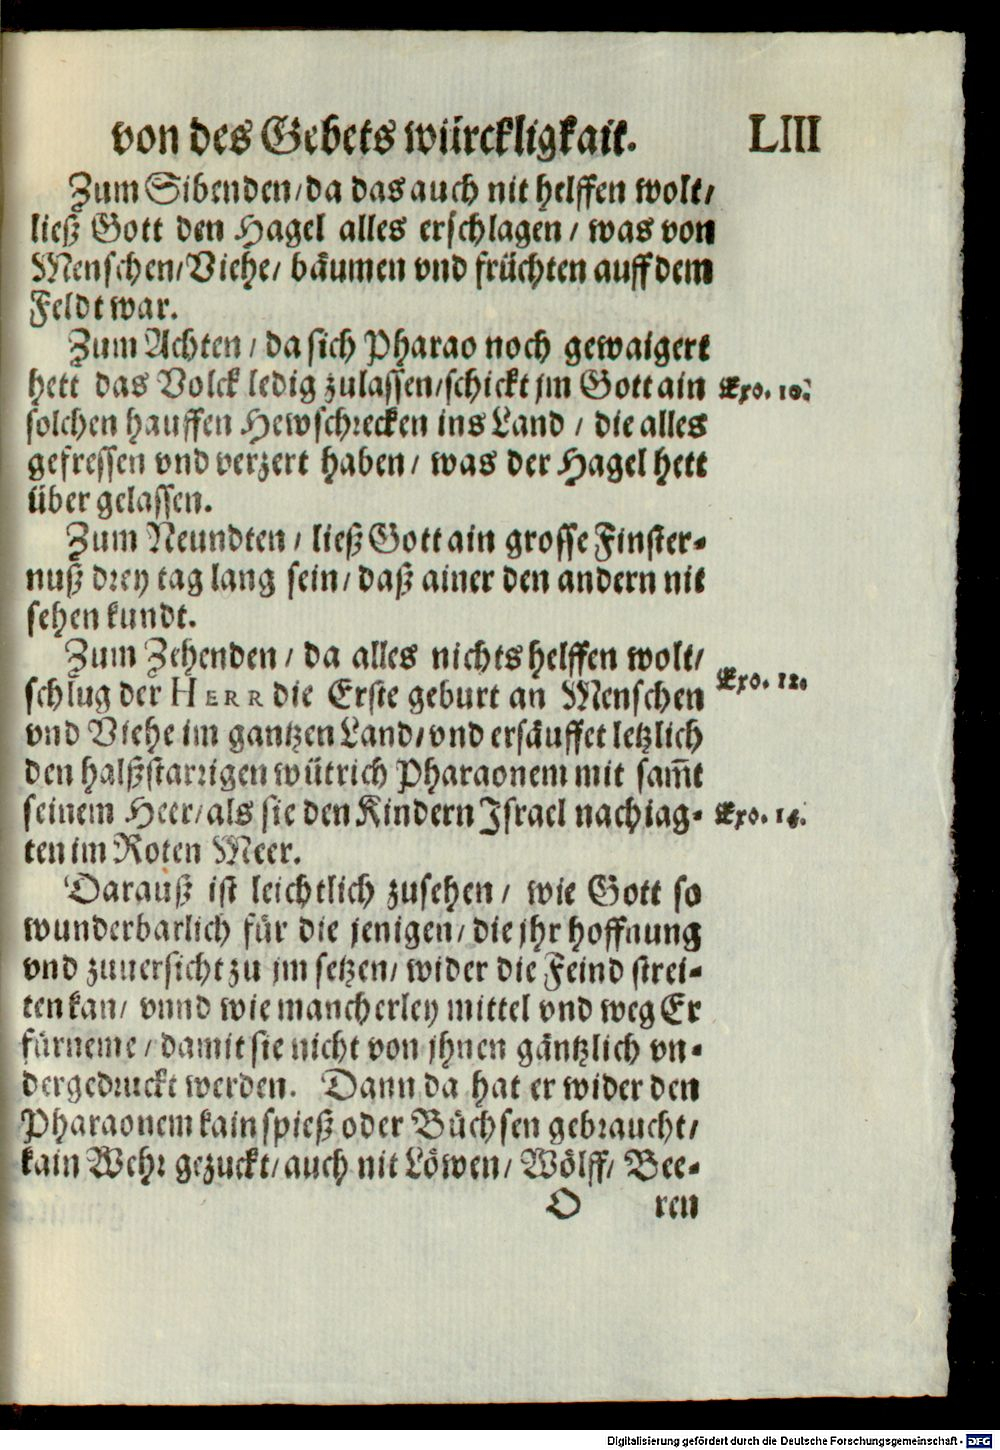 von des Gebets würckligkait. LIII
Zum Sibenden/ da das auch nit helffen wolt/
ließ Gott den Hagel alles erschlagen / was von
Menschen/ Viehe/ bäumen vnd früchten auff dem
Feldt war.
Zum Achten / da sich Pharao noch gewaigert
hett das Volck ledig zulassen/ schickt jm Gott ain Exo. 10.
solchen hauffen Hewschrecken ins Land / die alles
gefressen vnd verzert haben/ was der Hagel hett
über gelassen.
Zum Neundten / ließ Gott ain grosse Finster-
nuß drey tag lang sein/ daß ainer den andern nit
sehen kundt.
Zum Zehenden / da alles nichts helffen wolt/
schlug der HERR die Erste geburt an Menschen Exo. 12.
vnd Viehe im gantzen Land/ vnd ersäuffet letzlich
den halßstarrigen wütrich Pharaonem mit sam̃t
seinem Heer/ als sie den Kindern Israel nachiag- Exo. 14.
ten im Roten Meer.
Darauß ist leichtlich zusehen / wie Gott so
wunderbarlich für die jenigen/ die jhr hoffnung
vnd zuuersicht zu jm setzen/ wider die Feind strei-
ten kan/ vnnd wie mancherley mittel vnd weg Er
fürneme / damit sie nicht von jhnen gäntzlich vn-
dergedruckt werden. Dann da hat er wider den
Pharaonem kain spieß oder Büchsen gebraucht/
kain Wehr gezuckt/ auch nit Löwen/ Wölff/ Bee-
O ren
Digitalisierung gefördert durch die Deutsche Forschungsgemeinschaft - DFG